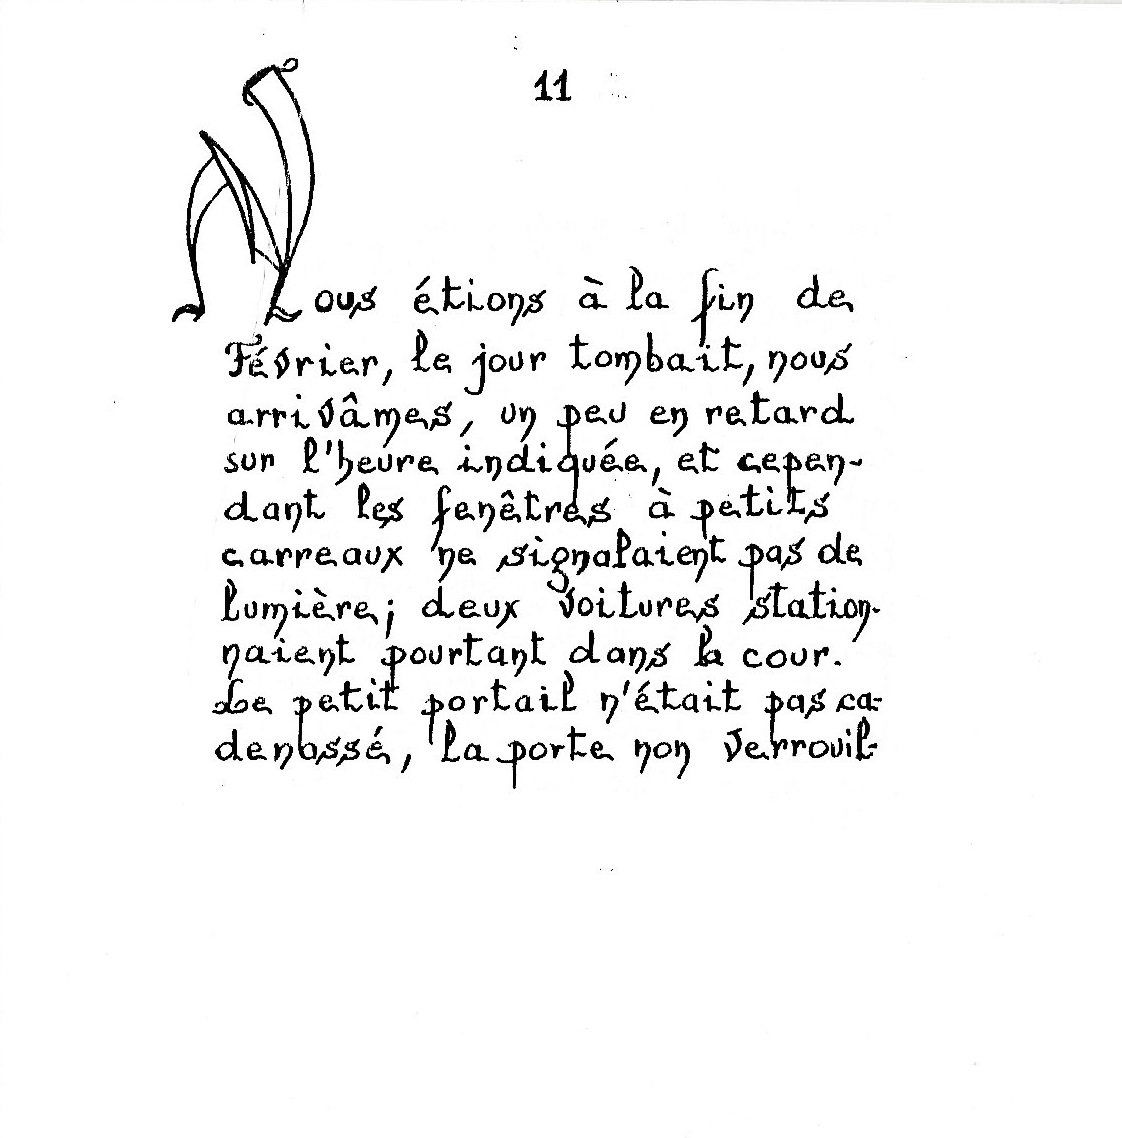 11
Nous étions à la fin de
Février, le jour tombait, nous
arrivâmes, un peu en retard
sur l'heure indiquée, et cepen-
dant les fenêtres à petits
carreaux ne signalaient pas de
lumière; deux voitures station-
naient pourtant dans la cour.
Le petit portail n'était pas ca-
denassé, la porte non verrouil-